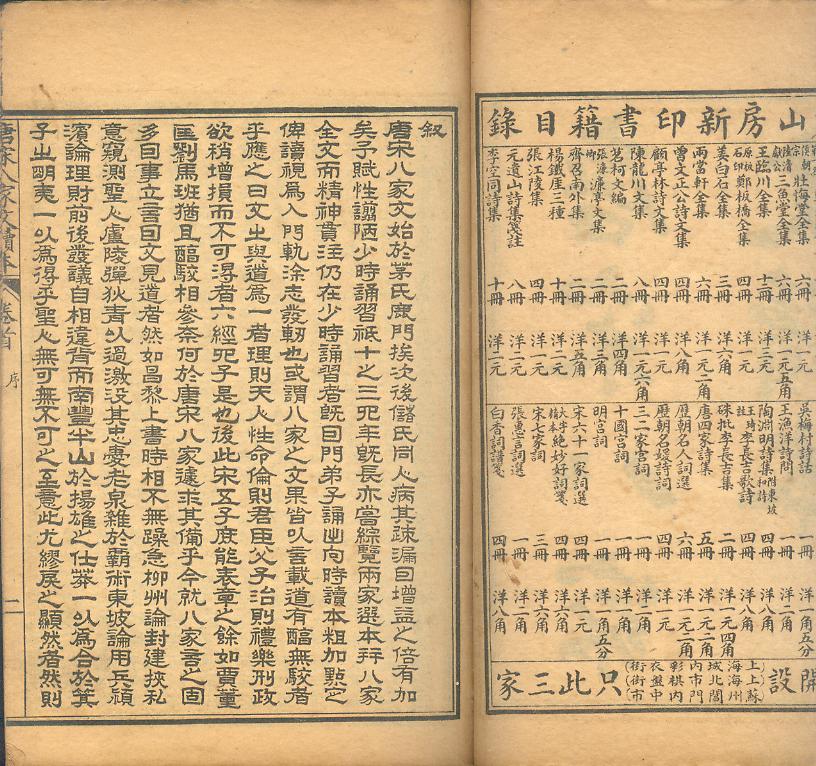 山房新印書籍目錄
侯朝宗壯悔堂全集 六冊 洋一元
陸清獻公三魚堂全集 六冊 洋一元五角
王臨川全集 十二冊 洋三元
原板石印鄭板橋全集 四冊 洋一元
姜白石全集 三冊 洋六角
兩當軒全集 六冊 洋一元二角
曾文正公詩文集 四冊 洋八角
顧亭林詩文集 四冊 洋一元
陳龍川文集 八冊 洋一元六角
茗柯文編 二冊 洋四角
張濂卿濂亭文集 二冊 洋三角
齊召南外集 二冊 洋五角
楊鐵崖三種 十冊 洋二元
張江陵集 四冊 洋一元
元遺山詩集箋註 八冊 洋二元
李空同詩集 十冊 洋二元
吳梅村詩話 一冊 洋一角五分
王漁洋詩問 一冊 洋二角
陶淵明詩集附東坡和詩 四冊 洋八角
王琦註李長吉歌詩 四冊 洋八角
硃批李長吉集 二冊 洋一元四角
唐四家詩集 五冊 洋一元二角
歷朝名人詞選 六冊 洋一元二角
歷朝名媛詩詞 四冊 洋一元
三二家宮詞 一冊 洋二角
十國宮詞 一冊 洋一角
明宮詞 一冊 洋一角五分
宋六十一家詞選 四冊 洋一元
大字精本絕妙好詞箋 四冊 洋六角
宋七家詞選 三冊 洋六角
張惠言詞選 一冊 洋二角
白香詞譜箋 四冊 洋八角
開設
蘇州閶門內中市
上海北市棋盤街
上海城內彩衣街
只此三家
叙
唐宋八家文始於茅氏鹿門挨次後儲氏同人病其疎漏曰增益之倍有加
矣予賦性謭陋少時誦習祇十之三四年既長亦嘗綜覽兩家選本於八家
全文而精神貫注仍在少時誦習者既曰門弟子誦出向時讀本粗加點之
俾讀視為入門軌涂志發軔也或謂八家之文果皆以言載道有醇無駮者
乎應之曰文之與道為一者理則天人性命倫則君臣父子治則禮樂刑政
欲稍增損而不可得者六經四子是也後此宋五子庶能表章之餘如賈董
匡劉馬班猶且醇駮相參奈何於唐宋八家遽求其備乎今就八家言之固
多曰事立言曰文見道者然如昌黎上書時相不無躁急柳州論封建挾私
意窺測聖人廬陵彈狄青以過激沒其忠憂老泉雜於霸術東坡論用兵潁
濱論理財前後發議自相違背而南豐半山於揚雄之仕莽一以為合於箕
子之明夷一以為得乎聖人無可無不可之至意此尤繆戾之顯然者然則
唐宋八家文讀本
卷首
序
一